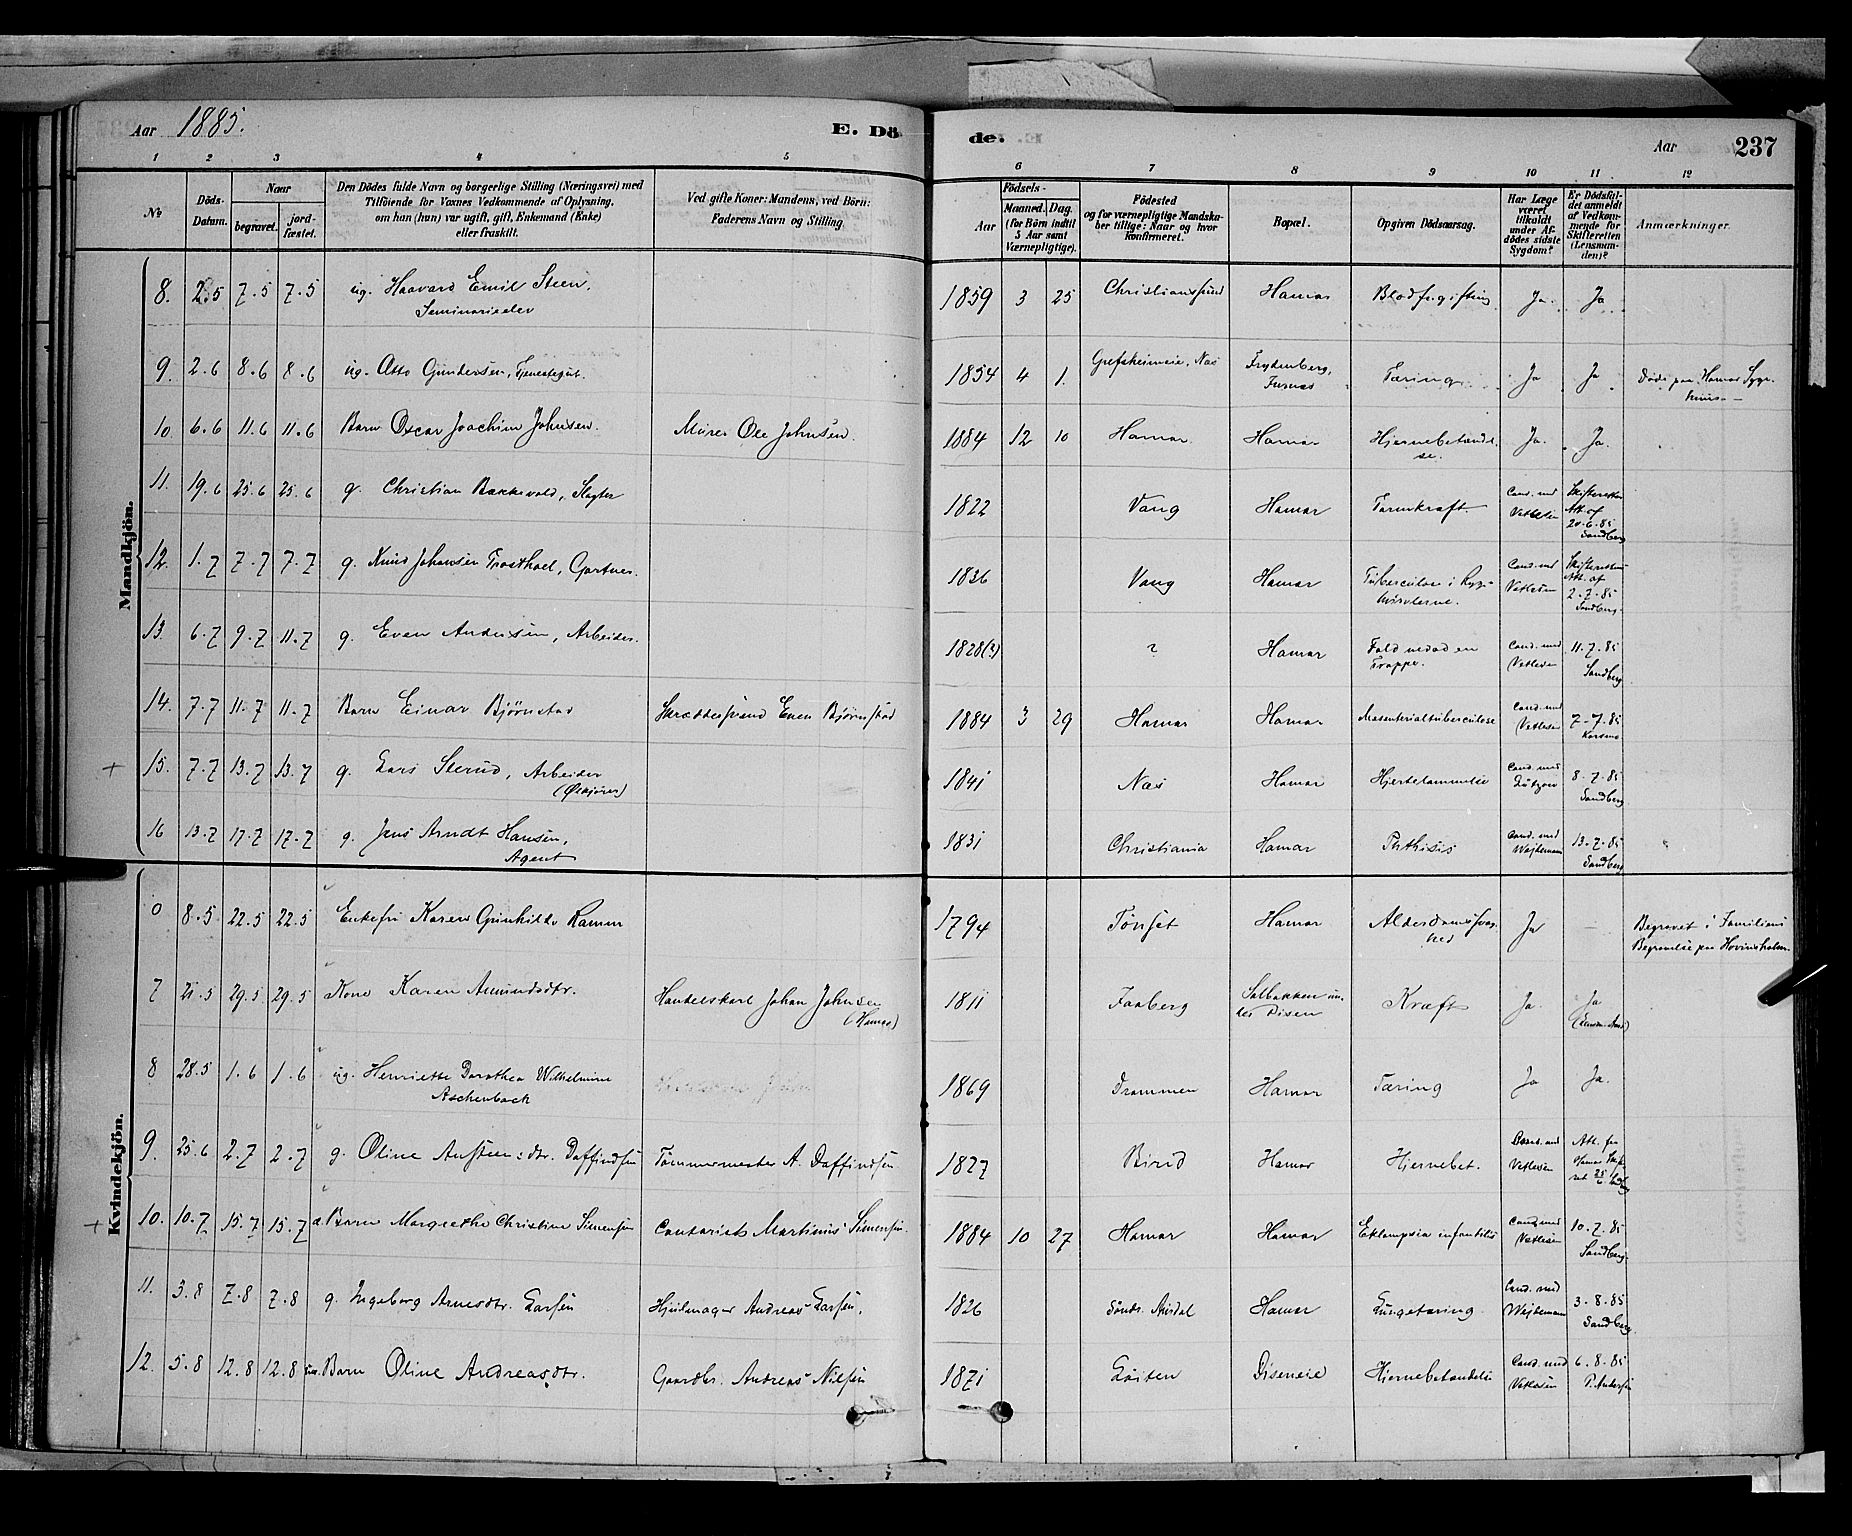 Aar 1885. E. Dö de. Aar 237
1 2 3 4 5 6 7 8 9 10 11 12
№ Döds-Datum. Naar begravet. jordfæstet. Den Dödes fulde Navn og borgerlige Stilling (Næringsvei) med Tilföiende for Voxnes Vedkommende af Oplysning, om han (hun) var ugift, gift, Enkemand (Enke) eller fraskilt. Ved gifte Koner: Mandens, ved Börn: Faderens Navn og Stilling. Födsels- Aar Maaned. Dag. (for Börn indtil 5 Aar samt Værnepligtige). Födested og for værnepligtige Mandskaber tillige: Naar og hvor konfirmeret. Bopæl. Opgiven Dödsaarsag. Har Læge været tilkaldt under Afdödes sidste Sygdom? Er Dödsfaldet anmeldt af Vedkommende for Skifteretten (Lensmanden)? Anmærkninger.
Mandkjön.
8. 2.5 7.5 7.5 ug. Haavard Emil Steen, Seminarieelev 1859 3 25 Christianssund Hamar Blodforgiftning Ja. Ja
9. 2.6 8.6 8.6 ug. Otto Gundersen, Tjenestegut. 1854 4 1. Grefsheimeie, Næs Frydenberg, Furnæs Tæring Ja Ja Døde paa Hamar Sygehuus
10 6.6 11.6 11.6 Barn Oscar Joachim Johnsen. Murer Ole Johnsen. 1884 12 10 Hamar Hamar Hjernebetændelse. Ja. Ja.
11. 19.6 25.6 25.6 g. Christian Bakkevold, Slagter 1822 Vang Hamar Tarmkræft. Cand. med Vetlesen Skifteretten Att. af 20-6-85 Sandberg
12. 1.7 7.7 7.7 g. Knud Johansen Frosthoel, Gartner. 1836 Vang Hamar Tuberculose i Ryghvirvlerne. Cand. med Vetlesen Skifteretten Att. af 2-7-85 Sandberg.
13. 6.7 9.7 11.7 g. Even Andersen, Arbeider. 1828(?) ? Hamar Fald nedad en Trappe. Cand. med Vetlesen 11-7-85 Sandberg
14. 7.7 11.7 11.7 Barn Einar Bjørnstad Skræddersvend Even Bjørnstad 1884 3 29 Hamar Hamar Mesenterialtuberculose Cand. med Vetlesen 7-7-85 Korsmo
+ 15. 7.7 13.7 13.7 g. Lars Sterud, Arbeider (Ølkjører) 1841 Næs Hamar Hjertelammelse Cand. med Lützow 8-7-85 Sandberg
16 13.7 17.7 17.7 g. Jens Arndt Hansen, Agent 1831 Christiania Hamar Phthisis Cand. med Wejdemann 13-7-85 Sandberg
Kvindekjön.
8.5 22.5 22.5 Enkefru Karen Gunhilde Ramm 1794 Tönset Hamar Alderdomssvaghed Ja - Begravet i Familiens Begravelse paa Hovinsholm.
7 21.5 29.5 29.5 Kone Karen Amundsdtr. Handelskarl Johan Johnsen (Hamar) 1811 Faaberg Solbakken under Disen Kræft Ja. Ja
8 28.5 1.6 1.6 ug. Henriette Dorothea Wilhelmine Aschenbach 1869 Drammen Hamar Tæring Ja Ja.
9. 25.6 2.7 2.7 g. Oline Austensdtr. Daffindsen Tømmermester A. Daffindsen 1827 Birid Hamar Hjernebet. Cand. med Vetlesen Att. fra Hamar
+ 10. 10.7 15.7 15.7 Barn Margrethe Christine Simensen Contorist Martinus Simensen. 1884 10 27 Hamar Hamar Eklampsia infantilis Cand. med Vetlesen 10-7-85 Sandberg
11. 3.8 7.8 7.8 g. Ingeborg Arnesdtr. Larsen Hjulmager Andreas Larsen. 1826 Söndr. Aurdal Hamar Lungetæring. Cand. med Wejdemann 3-8-85 Sandberg.
12. 5.8 12.8 12.8 Barn Oline Andreasdtr. Gaardbr. Andreas Nilsen 1871 Löiten Diseneie Hjernebetændelse Cand. med Vetlesen 6-8-85 P. Andersen